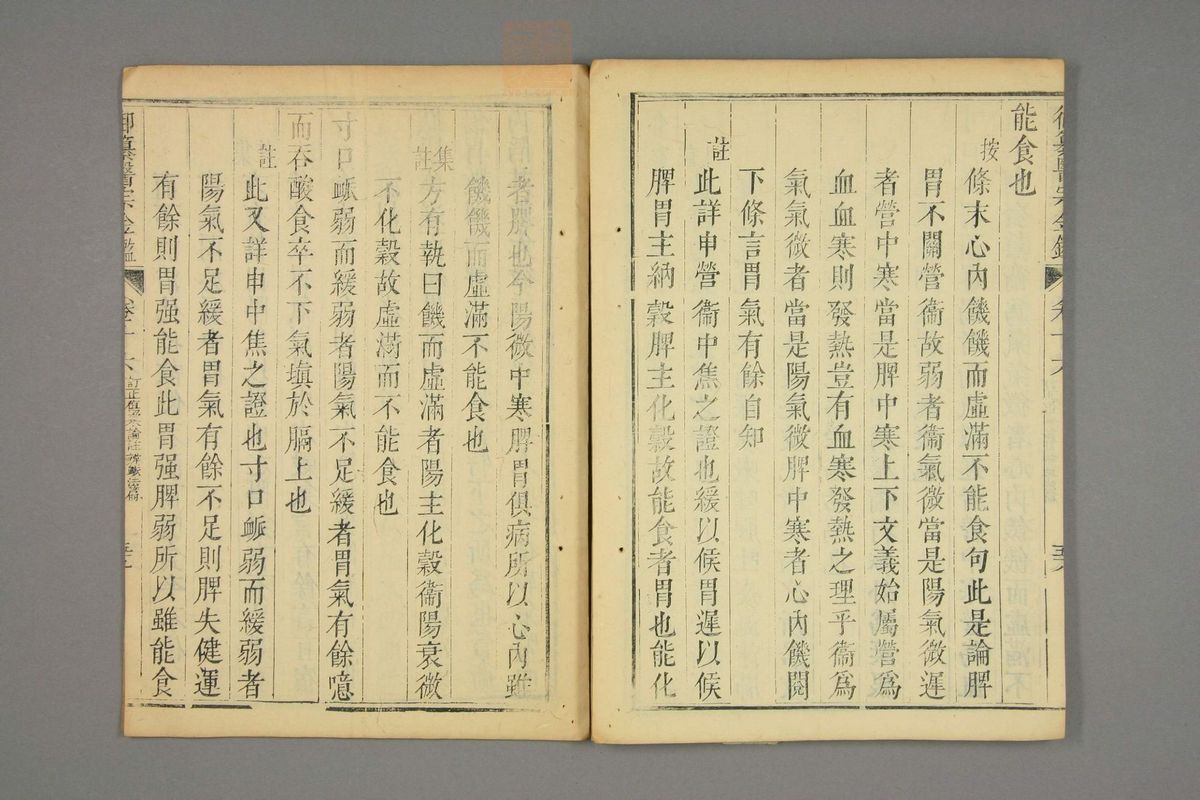 能食也
按
條末心內饑饑而虛滿不能食句此是論脾
胃不關營衞故弱者衞氣微當是陽氣微遲
者營中寒當是脾中寒上下文義始屬營爲
血血寒則發熱豈有血寒發熱之理乎衞爲
氣氣微者當是陽氣微脾中寒者心內饑闋
下條言胃氣有餘自知
註
此詳申營衞中焦之證也緩以候胃遲以候
脾胃主納穀脾主化穀故能食者胃也能化
者脾也今陽微中寒脾胃俱病所以心內雖
饑饑而虛滿不能食也
集註
方有執曰饑而虛滿者陽主化穀衞陽衰微
不化穀故虛滿而不能食也
寸口脈弱而緩弱者陽氣不足緩者胃氣有餘噫
而吞酸食卒不下氣塡於膈上也
註
此又詳申中焦之證也寸口脈弱而緩弱者
陽氣不足緩者胃氣有餘不足則脾失健運
有餘則胃强能食此胃强脾弱所以雖能食
御纂醫宗金鑑 卷十六